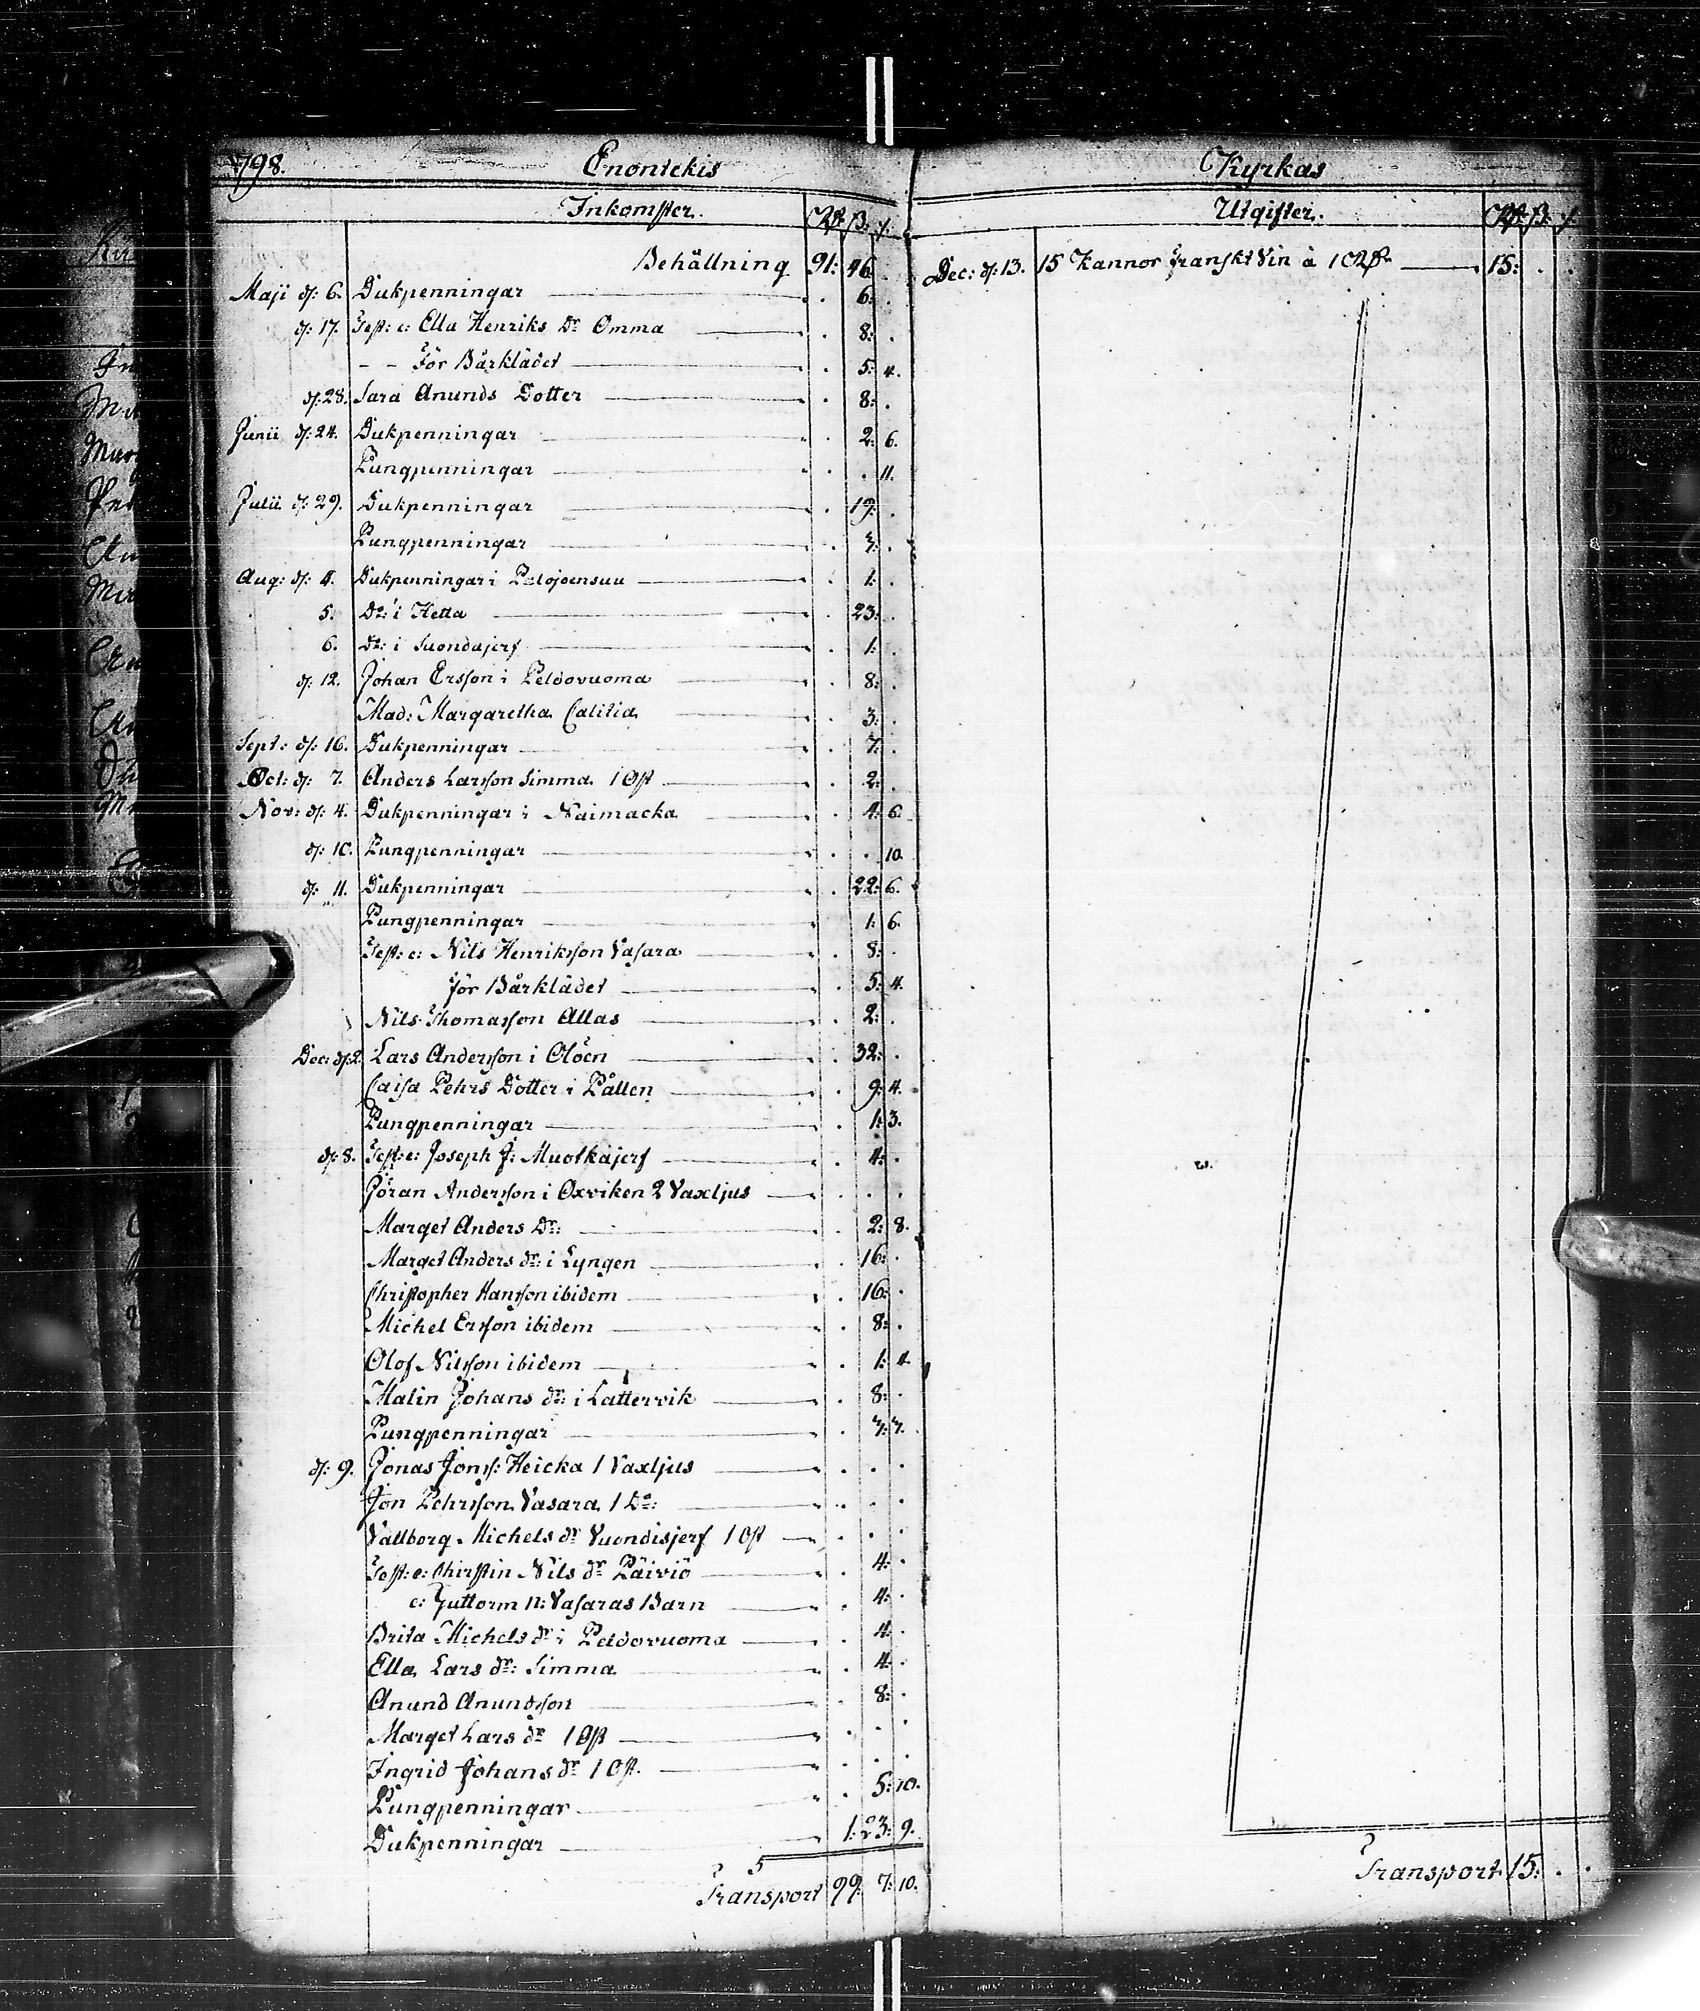 1798. Enontekis
Inkomster. Rdr ß. r.
Behållning 91: 46.
Maji d: 6. Dukpenningar . 6: .
d: 17. Test: e: Ella Henriks Dr Omma . 8: .
– – För Bårklädet . 5: 4.
d: 28. Sara Anunds Dotter . 8: .
Junii d: 24. Dukpenningar . 2: 6.
Pungpenningar . . 11.
Julii d: 29. Dukpenningar . 19: .
Pungpenningar . 3: .
Aug: d: 4. Dukpenningar i Palojoensuu . 1: .
5. Do: i Hetta . 23: .
6. Do: i Suondajerf . 1: .
d: 12. Johan Ersson i Peldovuoma . 8: .
Mad: Margaretha Calitia . 3: .
Sept: d: 16. Dukpenningar . 7: .
Oct: d: 7. Anders Larsson Simma 1 Ost . 2: .
Nov: d: 4. Dukpenningar i Naimacka . 4: 6.
d: 10. Pungpenningar . . 10.
d: 11. Dukpenningar . 22: 6.
Pungpenningar . 1: 6.
Test: e: Nils Henriksson Vasara . 8: .
för Bårklädet . 5: 4.
Nils Thomasson Allas . 2: .
Dec: d: 2. Lars Andersson i Olöen . 32: .
Caisa Pehrs Dotter i Pållen . 9: 4.
Pungpenningar . 1: 3.
d: 8. Test: e: Joseph J: Muotkajerf . 4: .
Jöran Andersson i Oxviken 2 Vaxljus . . .
Marget Anders Dr: . 2: 8.
Marget Anders dr: i Lyngen . 16: .
Christopher Hansson ibidem . 16: .
Michel Ersson ibidem . 8: .
Olof Nilsson ibidem . 1: 4.
Malin Johans dr: i Lattervik . 8: .
Pungpenningar . 7: 7.
d: 9. Jonas Jons: Heicka 1 Vaxljus . . .
Jon Pehrsson Vasara 1 Do: . . .
Vallborg Michels dr Vuondisjerf 1 Ost . . .
Test: e: Chirstin Nils dr Päiviö . 4: .
e: Guttorm N: Vasaras Barn . 4: .
Brita Michels dr i Peldovuoma . 4: .
Ella Lars dr: Simma . 4: .
Anund Anundsson . 8: .
Marget Lars dr 1 Ost . . .
Ingrid Johans dr 1 Ost. . . .
Pungpenningar . 5: 10.
Dukpenningar 1: 23: 9.
Transport 99: 7: 10.
Kyrkas
Utgifter. Rdr ß. r.
Dec: d: 13. 15 Kannor franskt Vin à 1 Rdr 15: . .
Transport 15: . .